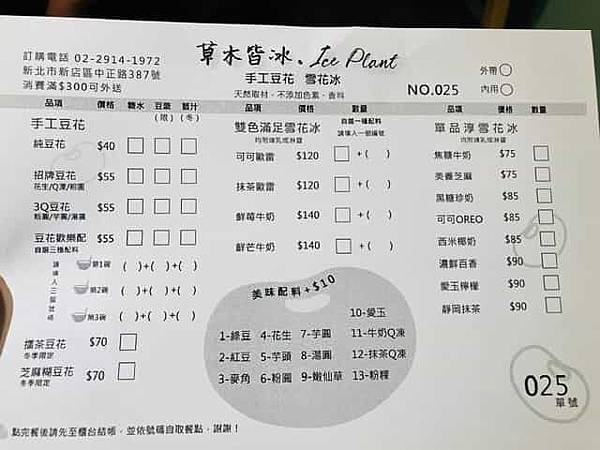 訂購電話 02-2914-1972
新北市新店區中正路387號
消費滿$300可外送
草木皆冰.Ice Plant
手工豆花 雪花冰
天然取材、不添加色素、香料
NO.025
外帶○
內用○
品項 價格 糖水 豆漿 薑汁
(限) (冬)
手工豆花
純豆花 $40
招牌豆花 $55
花生/Q凍/粉圓
3Q豆花 $55
粉圓/芋圓/湯圓
豆花歡樂配 $55
自選三種配料
請填入三個號碼
第1碗 ( )+( )+( )
第2碗 ( )+( )+( )
第3碗 ( )+( )+( )
擂茶豆花 $70
冬季限定
芝麻糊豆花 $70
冬季限定
品項 價格 數量
雙色滿足雪花冰
均附煉乳或淋醬
自選一種配料
請填入一個編號
可可歐蕾 $120 +( )
抹茶歐蕾 $120 +( )
鮮莓牛奶 $140 +( )
鮮芒牛奶 $140 +( )
美味配料+$10
10-愛玉
1-綠豆 4-花生 7-芋圓 11-牛奶Q凍
2-紅豆 5-芋頭 8-湯圓 12-抹茶Q凍
3-麥角 6-粉圓 9-嫩仙草 13-粉粿
品項 價格 數量
單品淳雪花冰
均附煉乳或淋醬
焦糖牛奶 $75
美養芝麻 $75
黑糖珍奶 $85
可可OREO $85
西米椰奶 $85
濃鮮百香 $90
愛玉檸檬 $90
靜岡抹茶 $90
025
單號
點完餐後請先至櫃台結帳，並依號碼自取餐點，謝謝！